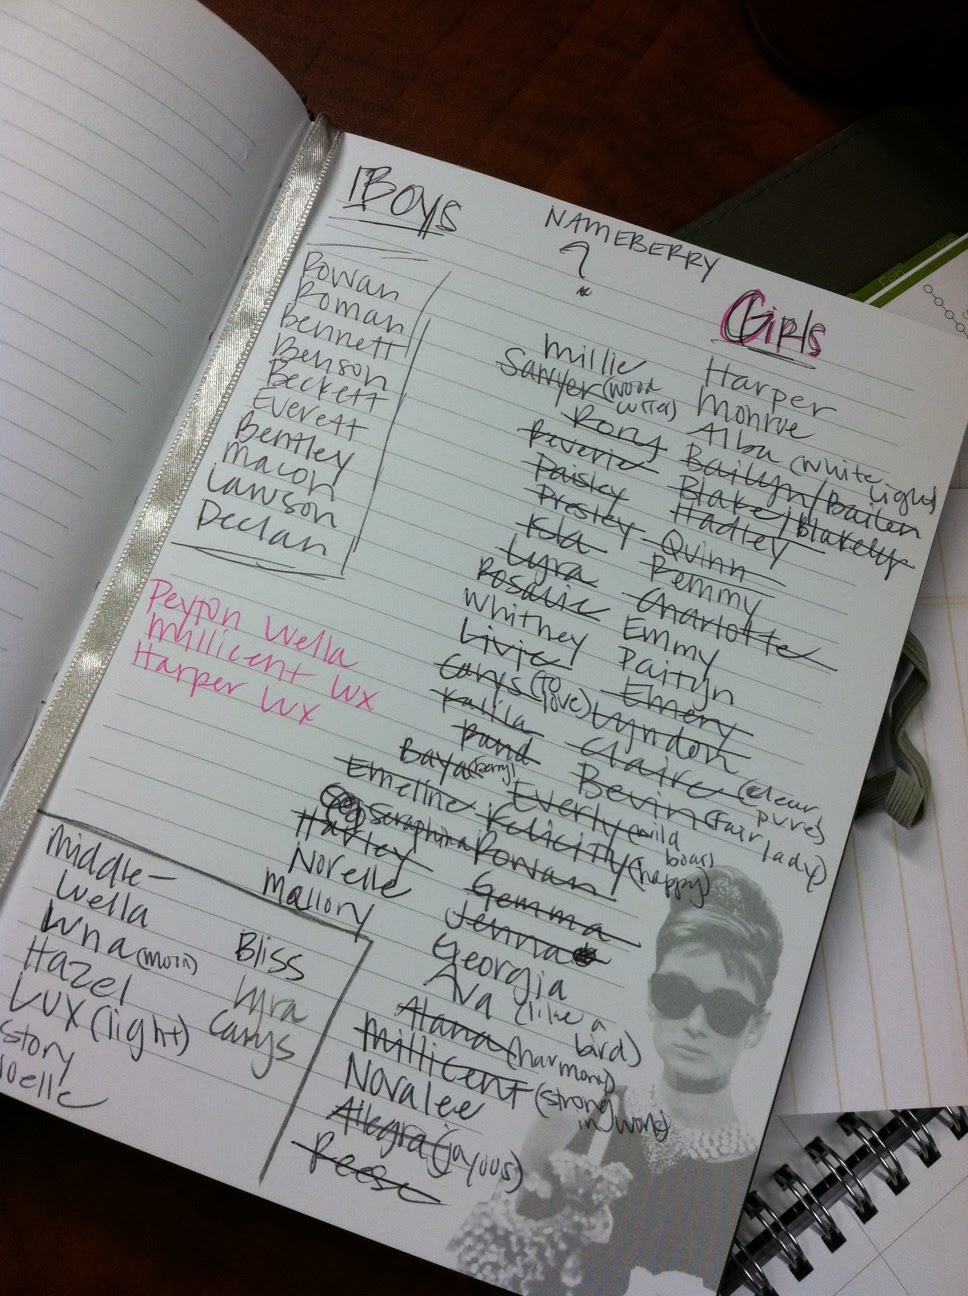 Boys
NAMEBERRY
?
Girls
Rowan
Roman
Bennett
Benson
Beckett
Everett
Bentley
Macon
Lawson
Declan
Peyton Wella
Millicent Lux
Harper Lux
Millie
Sawyer (wood
cutter)
Rory
Reverie
Paisley
Presley
Isla
Lyra
Rosalie
Whitney
Livie
Carys (to
love)
Kalila
Rand
Baya (berry)
Emeline
Seraphina
Hartley
Norelle
Mallory
Harper
Monroe
Alba (white
light)
Bailyn/Bailen
Blake/blakely
Hadley
Quinn
Remmy
Charlotte
Emmy
Paityn
Emery
Lyndon
Claire (clear
pure)
Bevin (fair lady)
Everly (wild
boar)
Felicity (happy)
Rowan
Gemma
Jenna
Georgia
Ava (like a
bird)
Alana (harmony)
Millicent (strong
in work)
Novalee
Allegra (joyous)
Reese
Middle-
Wella
(moon)
Hazel
Lux (light)
Story
Noelle
Bliss
Lyra
Carys